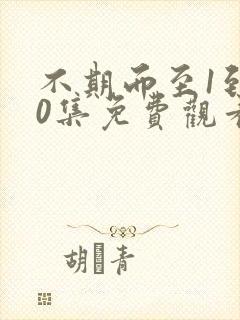 不期而至1到
0集免費觀看
胡 青